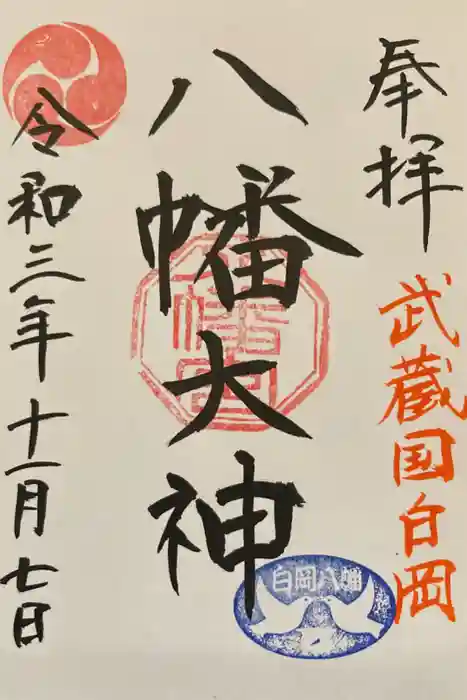 奉拝
武蔵国白岡
八幡大神
白岡八幡
令和三年十一月七日